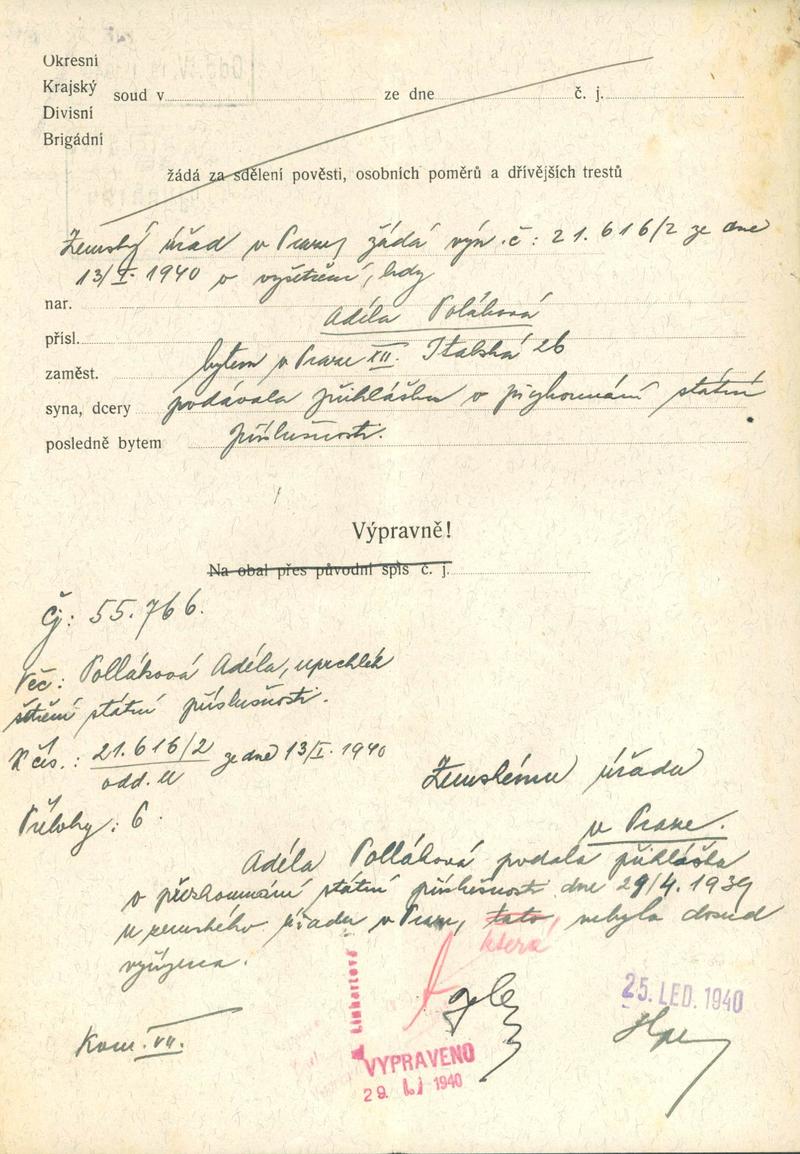 Okresní
Krajský
Divisní
Brigádní
soud v ze dne č. j.
žádá za sdělení pověsti, osobních poměrů a dřívějších trestů
Zemský úřad v Praze žádá výn. č: 21.616/2 ze dne
13/I. 1940 o vyšetření, kdy
nar.
Adéla Poláková
přísl.
bytem v Praze XII. Italská 26
zaměst.
syna, dcery podávala přihlášku o přezkoumání státní
posledně bytem příslušnosti.
Výpravně!
Na obal přes původní spis č. j.
Čj: 55.766.
Věc: Polláková Adéla, uprchlík
šetření státní příslušnosti.
K čís.: 21.616/2 ze dne 13/I. 1940
odd.
Přílohy: 6.
Zemskému úřadu
v Praze.
Adéla Polláková podala přihlášku
o přezkoumání státní příslušnosti dne 29/4. 1939
u zemského úřadu v Praze, tato, nebyla dosud
která
vyřízena.
Linhartová
25. LED. 1940
Kom. VII.
VYPRAVENO
29. I. 1940